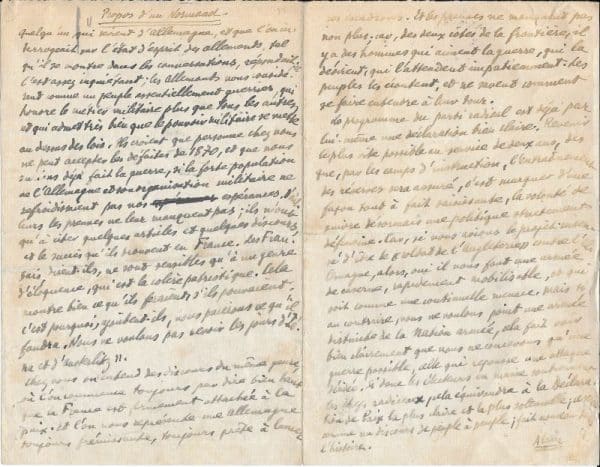 Propos d'un Normand
quelqu'un qui revient d'Allemagne, et que l'on in-
terrogeait sur l'état d'esprit des allemands, tel
qu'il se montre dans les conversations, répondait:
C'est assez inquiétant; les allemands nous considè-
rent comme un peuple essentiellement guerrier, qui
honore le métier militaire plus que tous les autres,
et qui admet très bien que le pouvoir militaire se mette
au dessus des lois. Ils croient que personne chez nous
ne peut accepter les défaites de 1870, et que nous
aurions déjà fait la guerre, si la forte population
de l'Allemagne et son organisation militaire ne
refroidissaient pas nos espérances. D'ail-
leurs les preuves ne leur manquent pas; ils n'ont
qu'à citer quelques articles et quelques discours,
et le succès qu'ils trouvent en France. Les Fran-
çais, disent-ils, ne sont sensibles qu'à un genre
d'éloquence, qui est la colère patriotique. Cela
montre bien ce qu'ils feraient s'ils pouvaient.
c'est pourquoi, ajoutent-ils, nous paierons ce qu'il
faudra. Nous ne voulons pas revoir les jours d'Ié-
na et d'Auerstedt".
Chez nous on entend des discours du même genre,
où l'on commence toujours par dire bien haut
que la France est fermement attachée à la
paix. et l'on nous représente une Allemagne
toujours frémissante, toujours prête à lancer
ses escadrons. Et les preuves ne manquent pas
non plus. car, des deux côtés de la frontière, il
y a des hommes qui aiment la guerre, qui la
désirent, qui l'attendent impatiemment. Les
peuples les écoutent, et ne savent comment
se faire entendre à leur tour.
Le programme du parti radical est déjà par
lui-même une déclaration bien claire. Revenir
le plus vite possible au service de deux ans, dès
que, par les camps d'instruction, l'entraînement
des réserves sera assuré, c'est marquer d'une
façon tout à fait saisissante, la volonté de
suivre désormais une politique strictement
défensive. Car, si nous avions le projet insen-
sé d'être le soldat de l'Angleterre contre l'Al-
lemagne, alors, oui il nous faut une armée
de caserne, rapidement mobilisable, et qui
soit comme une continuelle menace. Mais si
au contraire, nous ne voulons point une armée
distincte de la Nation armée, cela fait voir
bien clairement que nous ne concevons qu'une
guerre possible, celle qui repousse une attaque
décidée. Si donc les électeurs en masse soutiennent
les radicaux cela équivaudra à la Déclara-
tion de Paix la plus claire et la plus solennelle; ce sera
comme un discours de peuple à peuple; fait nouveau dans
l'histoire.
Alain